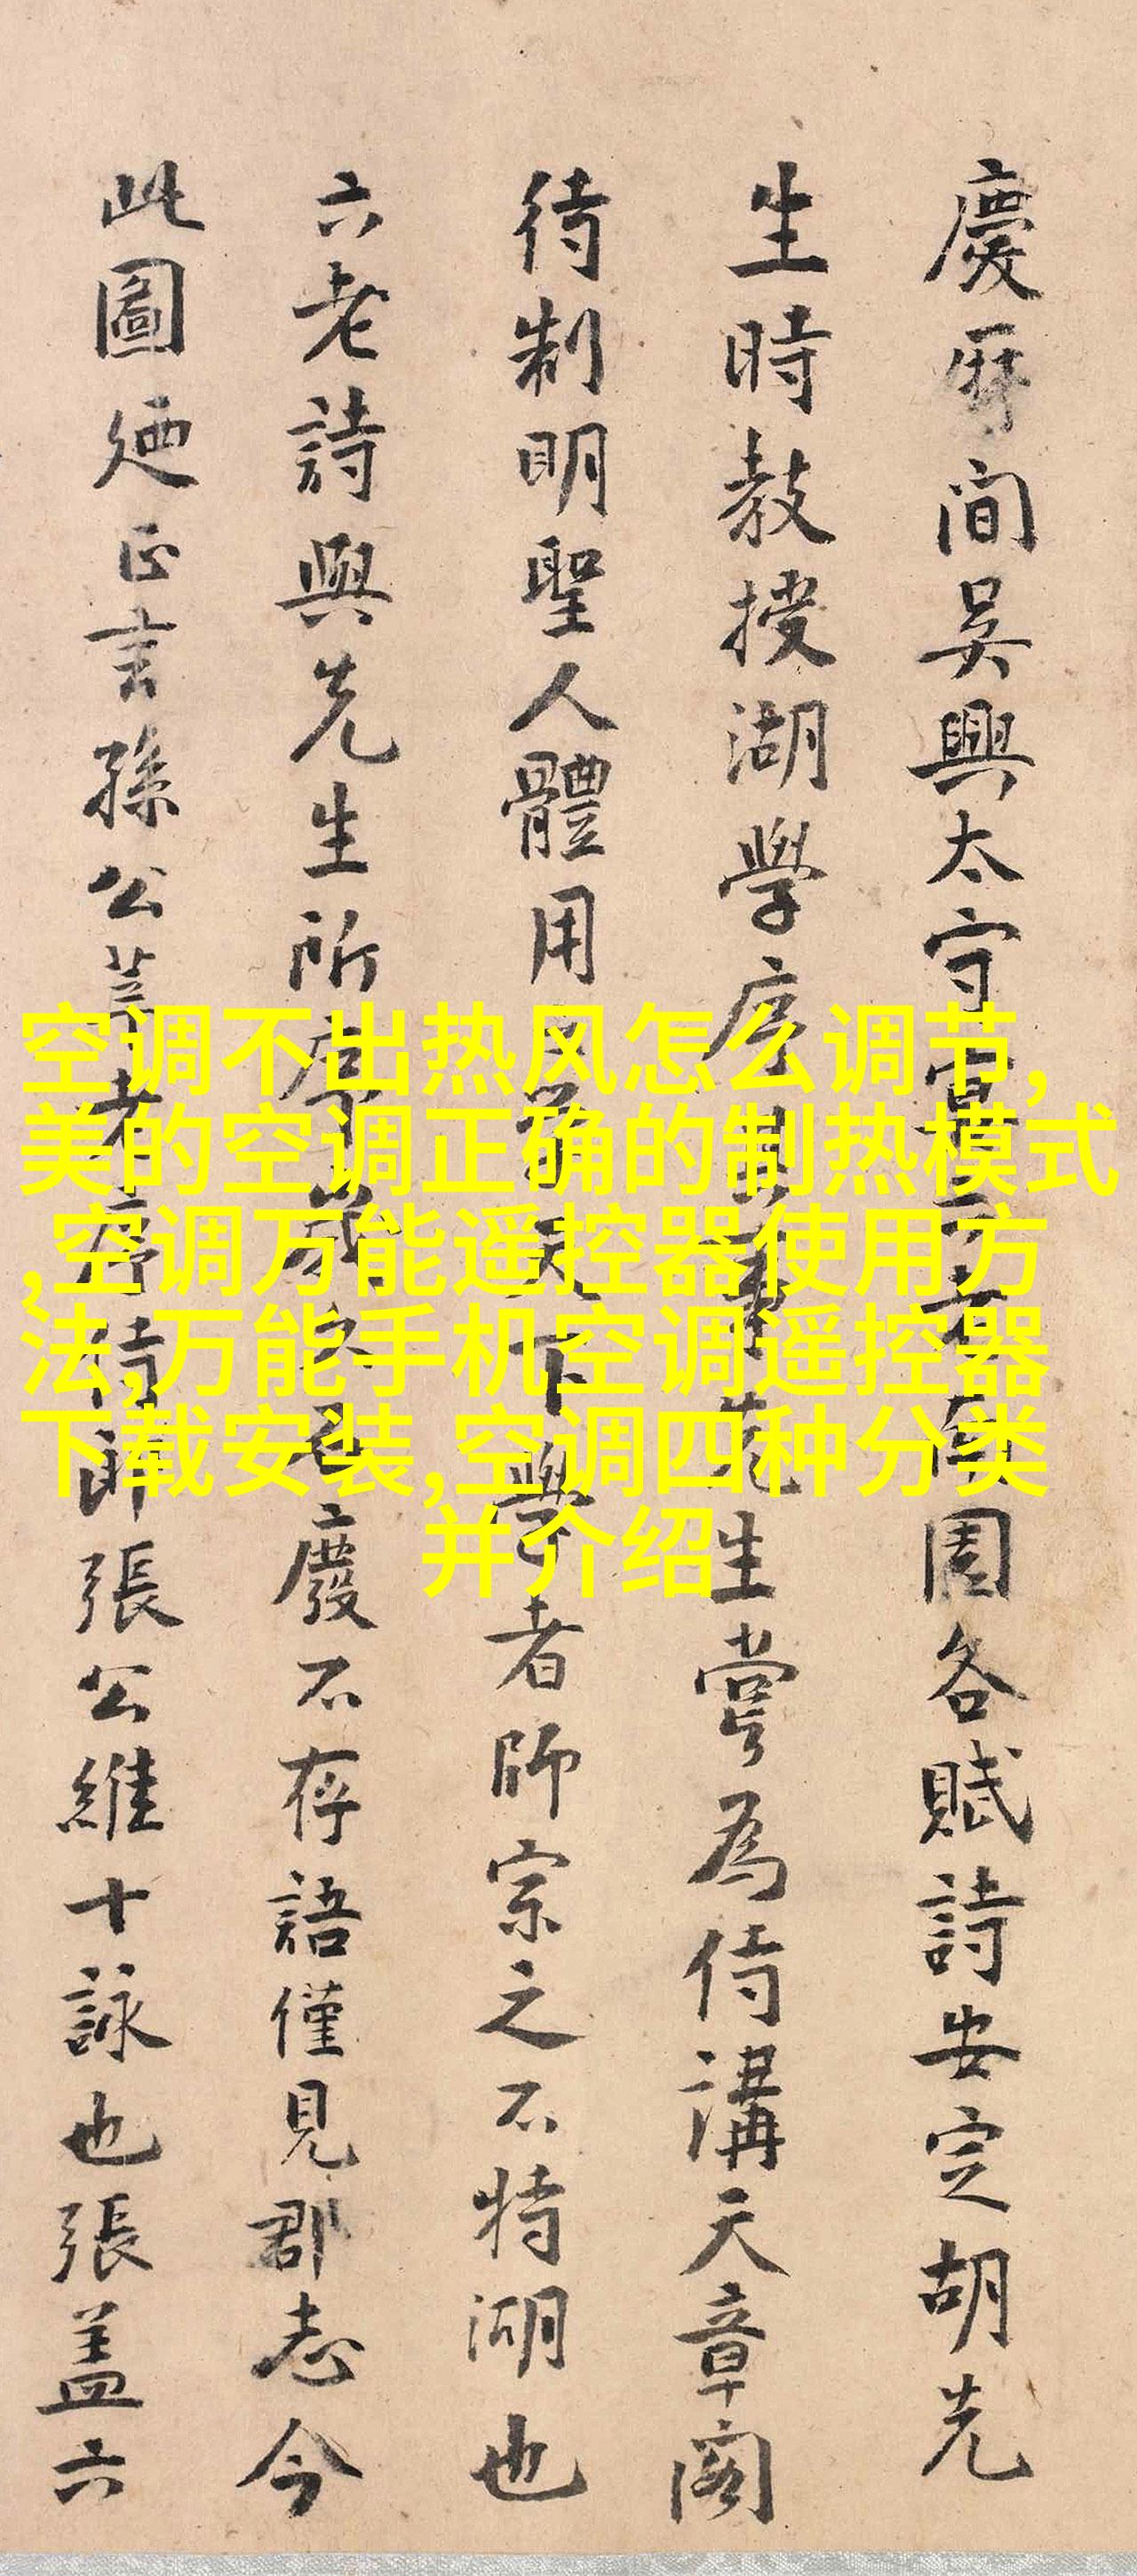 慶曆間吳興太守會六老於南園各賦詩安定胡先
生時教授湖學序其事先生嘗為侍講天章閣
待制明聖人體用
天下學者師宗之不特湖也
六老詩與先生所序
歲久石廢不存語僅見郡志今
此圖廼正言孫公莘老序侍郎張公維十詠也張蓋六
空调不出热风怎么调节,
美的空调正确的制热模式
,空调万能遥控器使用方
法,万能手机空调遥控器
下载安装,空调四种分类
并介绍